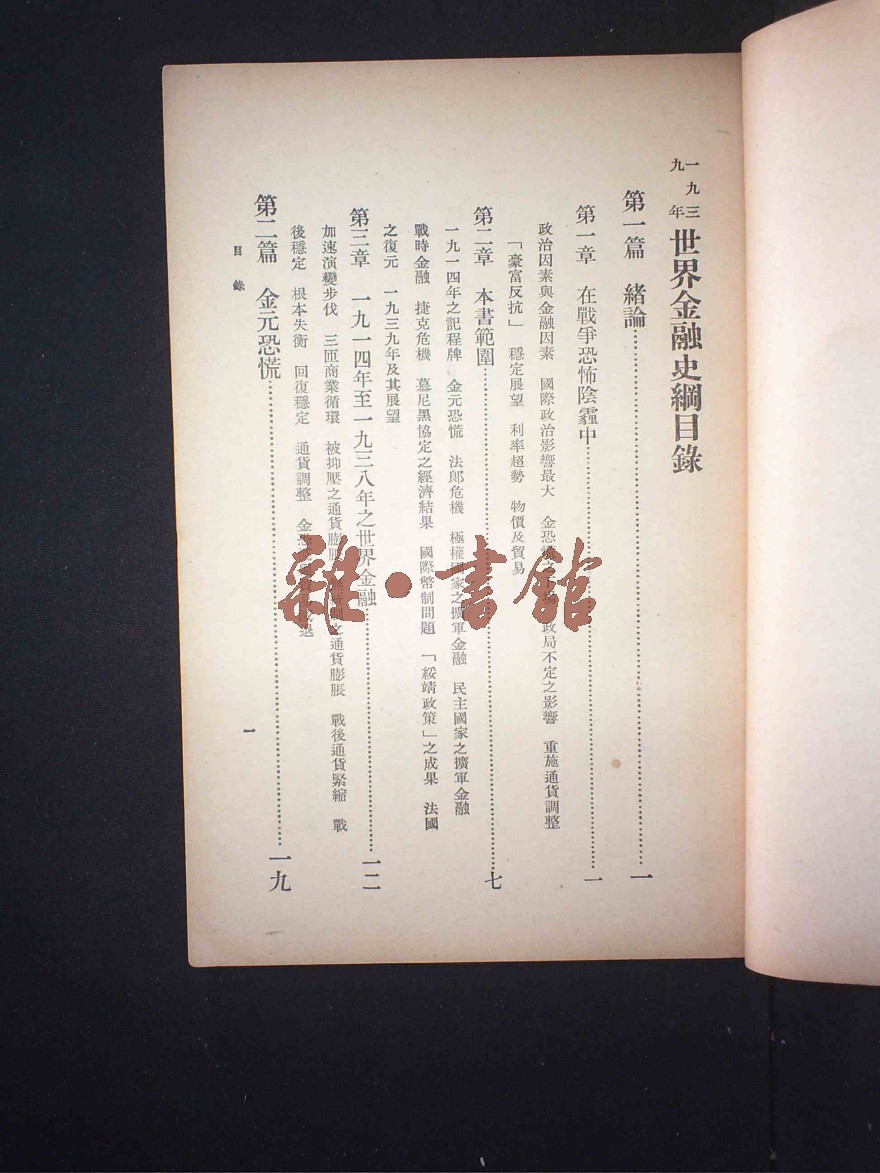 一九三九年 世界金融史綱目錄
第一篇 緒論……一
第一章 在戰爭恐怖陰霾中……一
政治因素與金融因素 國際政治影響最大 金恐慌 政局不定之影響 重施通貨調整
「豪富反抗」 穩定展望 利率趨勢 物價及貿易
第二章 本書範圍……七
一九一四年之記程牌 金元恐慌 法郎危機 極權國家之擴軍金融 民主國家之擴軍金融
戰時金融 捷克危機 慕尼黑協定之經濟結果 國際幣制問題 「綏靖政策」之成果 法國
之復元 一九三九年及其展望
第三章 一九一四年至一九三八年之世界金融……一二
加速演變步伐 三匝商業循環 被抑壓之通貨膨脹 之通貨膨脹 戰後通貨緊縮 戰
後穩定 根本失衡 回復穩定 通貨調整 金恐 退
第二篇 金元恐慌……一九
目錄
一
雜·書館